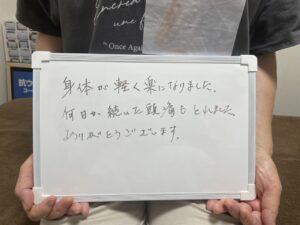 une f
Once Again
抗ウ
コー
身体が軽く楽になりました。
何日か続いた頭痛もとれました。
ありがとうございます。